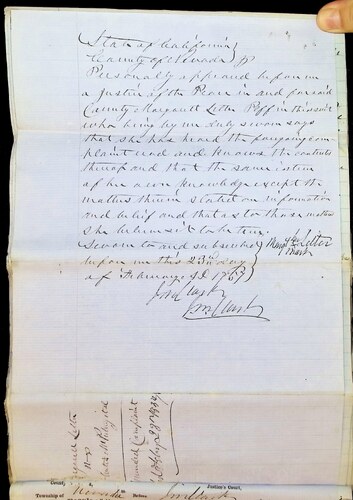 State of California }
County of Nevada } ss
Personally appeared before me
a justice of the Peace in and for said
County Margarett Letter Plff in this suit
who being by me duly sworn says
that she has heard the foregoing com-
plaint read and knows the contents
thereof and that the same is true
of her own knowledge except the
matters therein stated on information
and belief and that as to those matters
she believes it to be true.
Sworn to and subscribed
before me this 23rd day
of February AD 1863
her
Letter
mark
Clark
Clark
Margarett Letter
vs
Amended Complaint
Court,
Justice's Court,
Township of
Nevada
Before